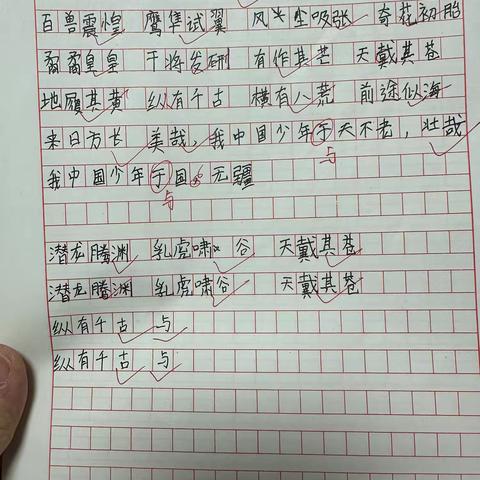 百兽震惶 鹰隼试翼 风尘吸张 奇花初胎
矞矞皇皇 干将发硎 有作其芒 天戴其苍
地履其黄 纵有千古 横有八荒 前途似海
来日方长 美哉,我中国少年于天不老,壮哉
与
我中国少年于国 无疆
与
潜龙腾渊 乳虎啸 谷 天戴其苍
潜龙腾渊 乳虎啸谷 天戴其苍
纵有千古 与
纵有千古 与